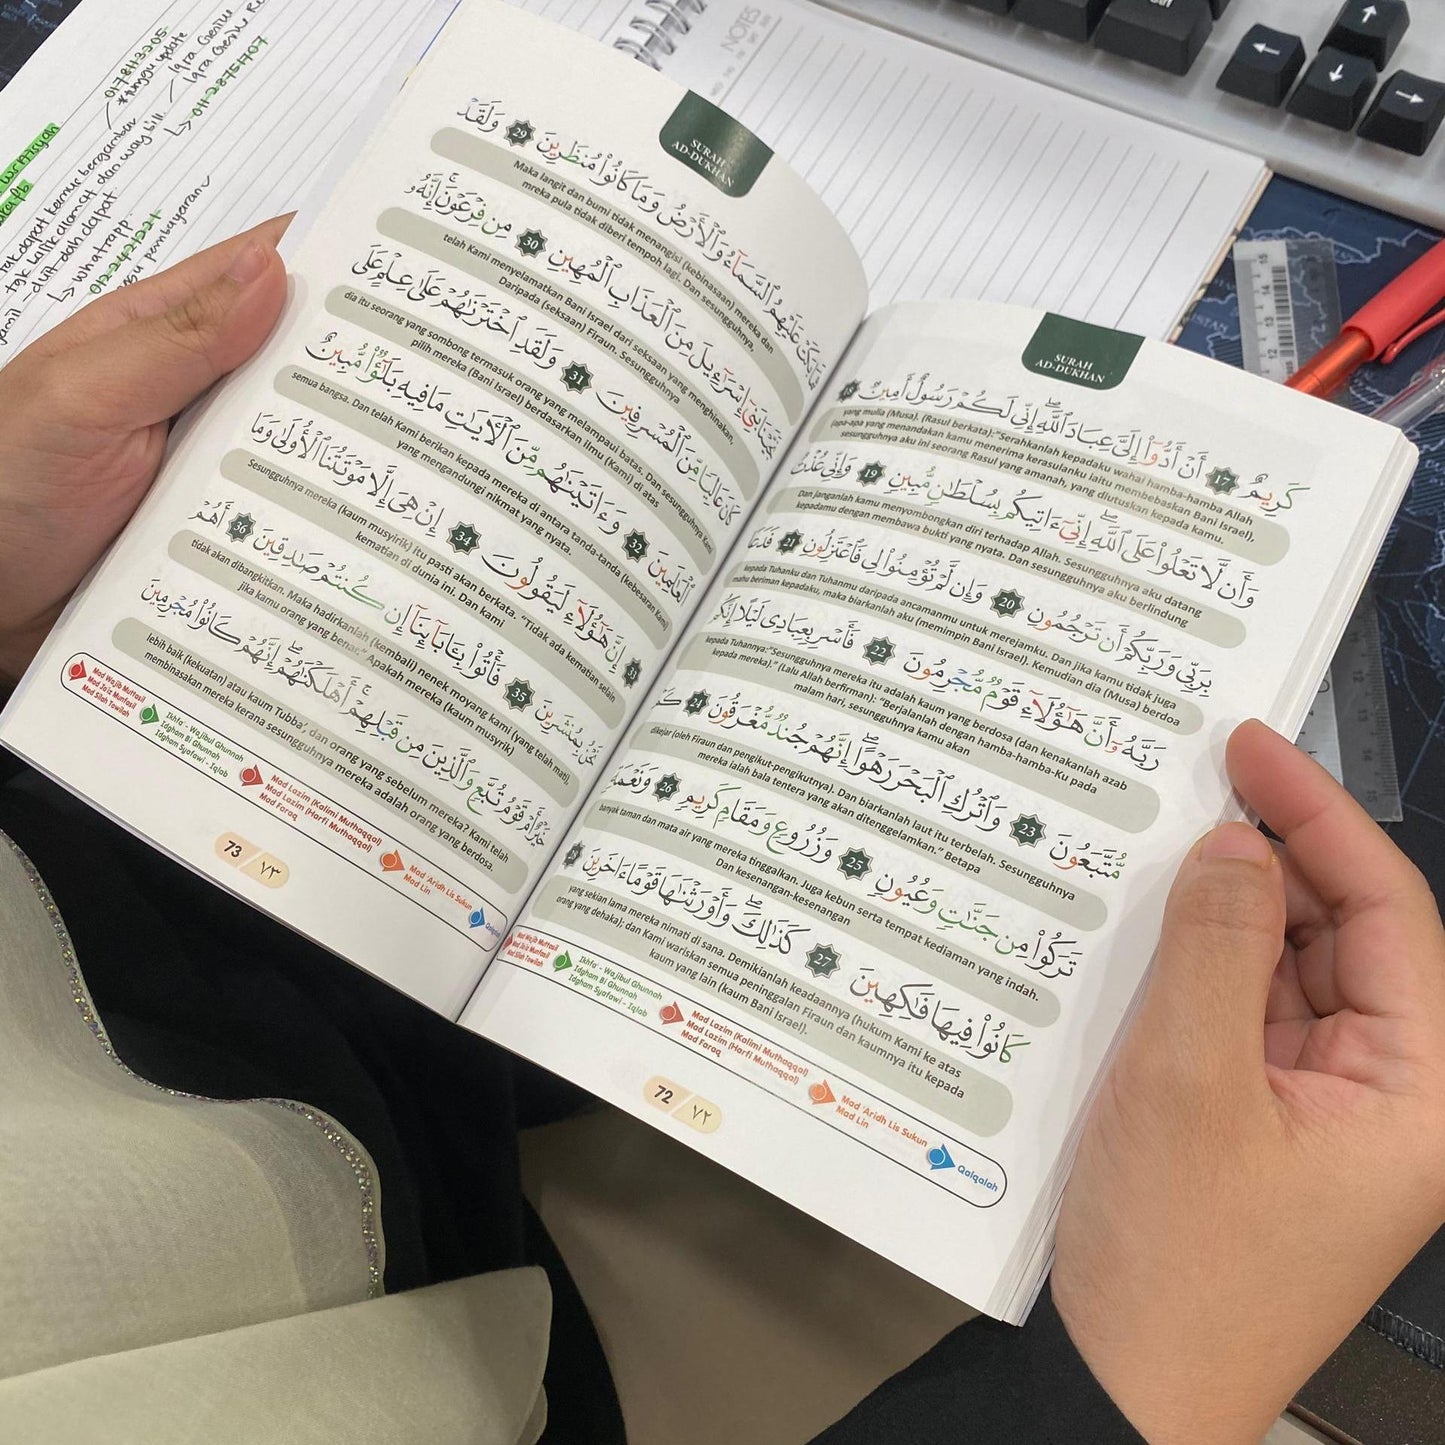 SURAH
AD-DUKHAN
كَرِيمٌ ١٧ أَنْ أَدُّوٓا۟ إِلَىَّ عِبَادَ ٱللَّهِ ۖ إِنِّى لَكُمْ رَسُولٌ أَمِينٌ 18
yang mulia (Musa). (Rasul berkata): "Serahkanlah kepadaku wahai hamba-hamba Allah
(apa-apa yang menandakan kamu menerima kerasulanku iaitu membebaskan Bani Israel),
sesungguhnya aku ini seorang Rasul yang amanah, yang diutuskan kepada kamu.
وَأَن لَّا تَعْلُوا۟ عَلَى ٱللَّهِ ۖ إِنِّىٓ ءَاتِيكُم بِسُلْطَٰنٍ مُّبِينٍ 19 وَإِنِّى عُذْتُ
Dan janganlah kamu menyombongkan diri terhadap Allah. Sesungguhnya aku datang
kepadamu dengan membawa bukti yang nyata. Dan sesungguhnya aku berlindung
بِرَبِّى وَرَبِّكُمْ أَن تَرْجُمُونِ 20 وَإِن لَّمْ تُؤْمِنُوا۟ لِى فَٱعْتَزِلُونِ 21 فَدَعَا
kepada Tuhanku dan Tuhanmu daripada ancamanmu untuk merejamku. Dan jika kamu tidak juga
mahu beriman kepadaku, maka biarkanlah aku (memimpin Bani Israel). Kemudian dia (Musa) berdoa
رَبَّهُۥٓ أَنَّ هَٰٓؤُلَآءِ قَوْمٌ مُّجْرِمُونَ 22 فَأَسْرِ بِعِبَادِى لَيْلًا إِنَّكُم
kepada Tuhannya:"Sesungguhnya mereka itu adalah kaum yang berdosa (dan kenakanlah azab
kepada mereka)." (Lalu Allah berfirman): "Berjalanlah dengan hamba-hamba-Ku pada
malam hari, sesungguhnya kamu akan
مُّتَّبَعُونَ 23 وَٱتْرُكِ ٱلْبَحْرَ رَهْوًا ۖ إِنَّهُمْ جُندٌ مُّغْرَقُونَ 24 كَمْ
dikejar (oleh Firaun dan pengikut-pengikutnya). Dan biarkanlah laut itu terbelah. Sesungguhnya
mereka ialah bala tentera yang akan ditenggelamkan." Betapa
تَرَكُوا۟ مِن جَنَّٰتٍ وَعُيُونٍ 25 وَزُرُوعٍ وَمَقَامٍ كَرِيمٍ 26 وَنَعْمَةٍ
banyak taman dan mata air yang mereka tinggalkan. Juga kebun serta tempat kediaman yang indah.
Dan kesenangan-kesenangan
كَانُوا۟ فِيهَا فَٰكِهِينَ 27 كَذَٰلِكَ ۖ وَأَوْرَثْنَٰهَا قَوْمًا ءَاخَرِينَ 28
yang sekian lama mereka nimati di sana. Demikianlah keadaannya (hukum Kami ke atas
orang yang dehaka); dan Kami wariskan semua peninggalan Firaun dan kaumnya itu kepada
kaum yang lain (kaum Bani Israel).
Mad Wajib Muttasil
Mad Ja'iz Munfasil
Mad Silah Tawilah
Ikhfa' - Wajibul Ghunnah
Idgham Bi Ghunnah
Idgham Syafawi - Iqlab
Mad Lazim (Kalimi Muthaqqal)
Mad Lazim (Harfi Muthaqqal)
Mad Faraq
Mad 'Aridh Lis Sukun
Mad Lin
Qalqalah
72 / ٧٢
SURAH
AD-DUKHAN
فَمَا بَكَتْ عَلَيْهِمُ ٱلسَّمَآءُ وَٱلْأَرْضُ وَمَا كَانُوا۟ مُنظَرِينَ 29 وَلَقَدْ
Maka langit dan bumi tidak menangisi (kebinasaan) mereka dan
mreka pula tidak diberi tempoh lagi. Dan sesungguhnya,
نَجَّيْنَا بَنِىٓ إِسْرَٰٓءِيلَ مِنَ ٱلْعَذَابِ ٱلْمُهِينِ 30 مِن فِرْعَوْنَ ۚ إِنَّهُۥ
telah Kami menyelamatkan Bani Israel dari seksaan yang menghinakan,
Daripada (seksaan) Firaun. Sesungguhnya
كَانَ عَالِيًا مِّنَ ٱلْمُسْرِفِينَ 31 وَلَقَدِ ٱخْتَرْنَٰهُمْ عَلَىٰ عِلْمٍ عَلَى
dia itu seorang yang sombong termasuk orang yang melampaui batas. Dan sesungguhnya Kami
pilih mereka (Bani Israel) berdasarkan ilmu (Kami) di atas
ٱلْعَٰلَمِينَ 32 وَءَاتَيْنَٰهُم مِّنَ ٱلْءَايَٰتِ مَا فِيهِ بَلَٰٓؤٌا۟ مُّبِينٌ
semua bangsa. Dan telah Kami berikan kepada mereka di antara tanda-tanda (kebesaran Kami)
yang mengandungi nikmat yang nyata.
33 إِنَّ هَٰٓؤُلَآءِ لَيَقُولُونَ 34 إِنْ هِىَ إِلَّا مَوْتَتُنَا ٱلْأُولَىٰ وَمَا
Sesungguhnya mereka (kaum musyirik) itu pasti akan berkata. "Tidak ada kematian selain
kematian di dunia ini. Dan kami
نَحْنُ بِمُنشَرِينَ 35 فَأْتُوا۟ بِـَٔابَآئِنَآ إِن كُنتُمْ صَٰدِقِينَ 36 أَهُمْ
tidak akan dibangkitkan. Maka hadirkanlah (kembali) nenek moyang kami (yang telah mati),
jika kamu orang yang benar." Apakah mereka (kaum musyrik)
خَيْرٌ أَمْ قَوْمُ تُبَّعٍ وَٱلَّذِينَ مِن قَبْلِهِمْ ۚ أَهْلَكْنَٰهُمْ ۖ إِنَّهُمْ كَانُوا۟ مُجْرِمِينَ
lebih baik (kekuatan) atau kaum Tubba', dan orang yang sebelum mereka? Kami telah
membinasakan mereka kerana sesungguhnya mereka adalah orang yang berdosa.
Mad Wajib Muttasil
Mad Ja'iz Munfasil
Mad Silah Tawilah
Ikhfa' - Wajibul Ghunnah
Idgham Bi Ghunnah
Idgham Syafawi - Iqlab
Mad Lazim (Kalimi Muthaqqal)
Mad Lazim (Harfi Muthaqqal)
Mad Faraq
Mad 'Aridh Lis Sukun
Mad Lin
73 / ٧٣
NOTES
*tunggu update
Iqra Genius
tak dapat kamur bergambar
- duit dah dapat
↳ whatsapp